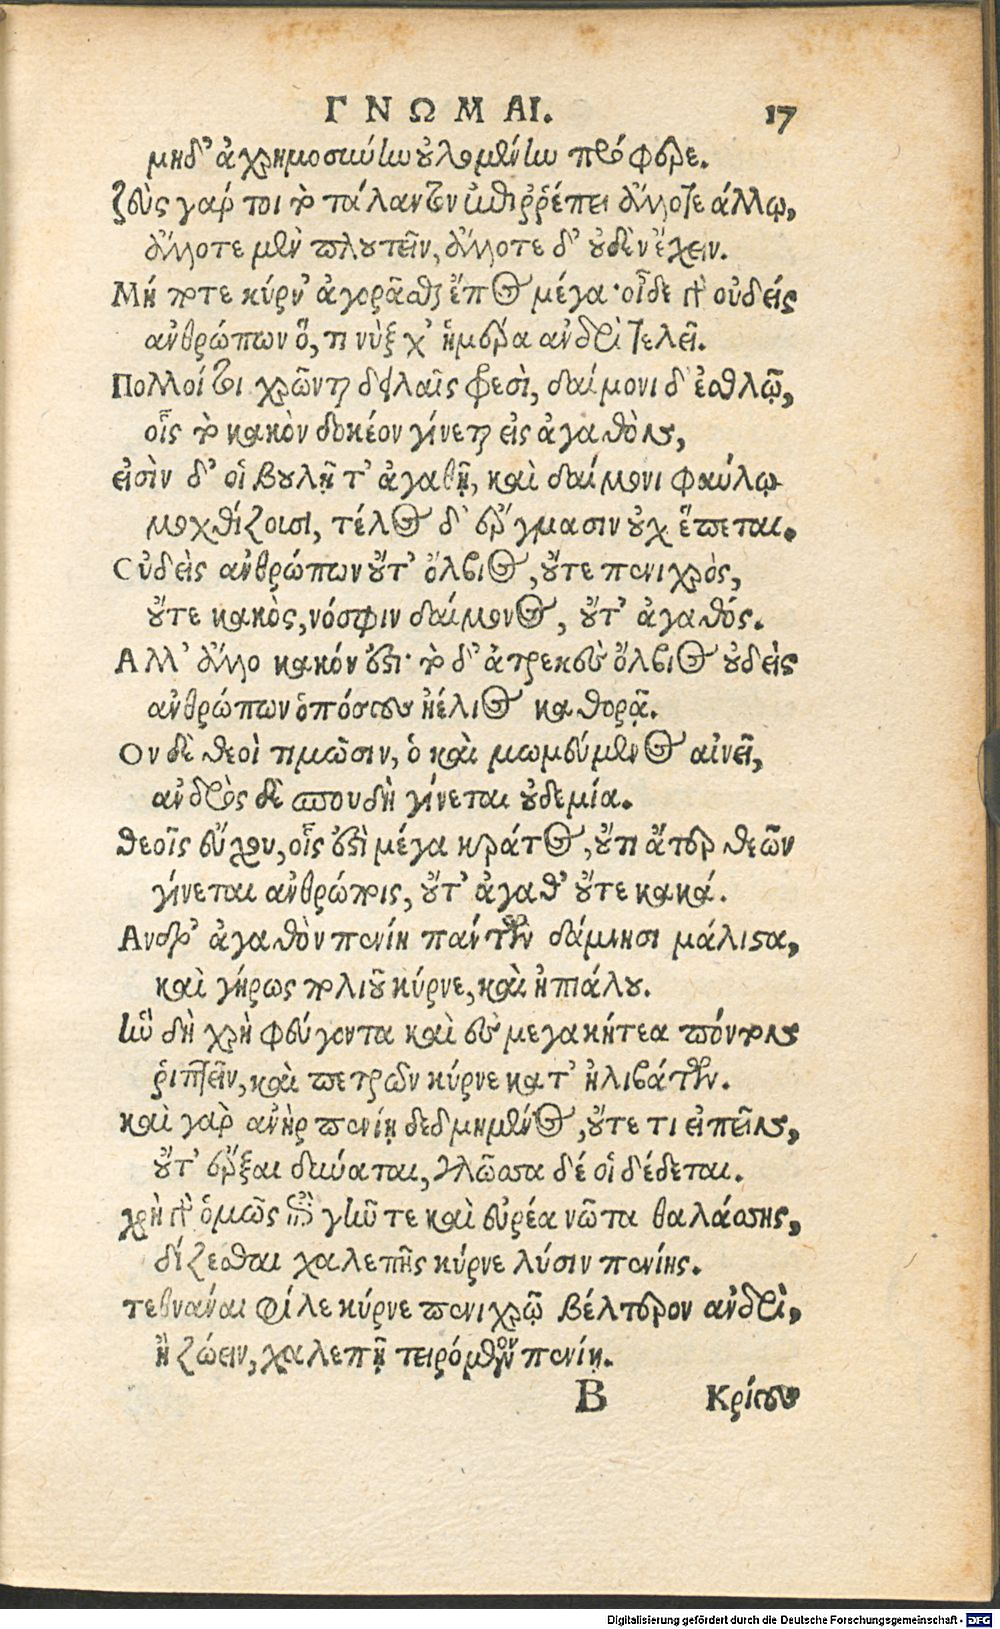 ΓΝΩΜΑΙ. 17
μηδ' ἀχρημοσύνην οὐλομένην πρόφερε.
ζεὺς γάρ τοι τὸ τάλαντον ἐπιῤῥέπει ἄλλοτε ἄλλῳ,
ἄλλοτε μὲν πλουτεῖν, ἄλλοτε δ' οὐδὲν ἔχειν.
Μή ποτε κύρν' ἀγορᾶσθαι ἔπος μέγα· οἶδε γὰρ οὐδείς
ἀνθρώπων ὅ, τι νὺξ χ' ἡμέρα ἀνδρὶ τελεῖ.
Πολλοί τοι χρῶνται δειλαῖς φρεσὶ, δαίμονι δ' ἐσθλῷ,
οἷς τὸ κακὸν δοκέον γίνεται εἰς ἀγαθὸν,
εἰσὶν δ' οἳ βουλῇ τ' ἀγαθῇ, καὶ δαίμονι φαύλῳ
μοχθίζουσι, τέλος δ' ἔργμασιν οὐχ ἕπεται.
Οὐδεὶς ἀνθρώπων οὔτ' ὄλβιος, οὔτε πενιχρὸς,
οὔτε κακὸς, νόσφιν δαίμονος, οὔτ' ἀγαθός.
Αλλ' ἄλλο κακόν ἐστι· τὸ δ' ἀτρεκὲς ὄλβιος οὐδεὶς
ἀνθρώπων ὁπόσους ἠέλιος καθορᾷ.
Ον δὲ θεοὶ τιμῶσιν, ὁ καὶ μωμεύμενος αἰνεῖ,
ἀνδρὸς δὲ σπουδὴ γίνεται οὐδεμία.
Θεοῖς εὔχου, οἷς ἐστὶ μέγα κράτος, οὔτι ἄτερ θεῶν
γίνεται ἀνθρώποις, οὔτ' ἀγαθ' οὔτε κακά.
Ανδρ' ἀγαθὸν πενίη πάντων δάμνησι μάλιστα,
καὶ γήρως πολιοῦ κύρνε, καὶ ἠπιάλου.
ἣν δὴ χρὴ φεύγοντα καὶ ἐς μεγακήτεα πόντον
ῥιπτεῖν, καὶ πετρῶν κύρνε κατ' ἠλιβάτων.
καὶ γὰρ ἀνὴρ πενίῃ δεδμημένος, οὔτε τι εἰπεῖν,
οὔτ' ἔρξαι δύναται, γλῶσσα δέ οἱ δέδεται.
χρὴ γὰρ ὁμῶς ἐπὶ γῆν τε καὶ εὐρέα νῶτα θαλάσσης,
δίζεσθαι χαλεπῆς κύρνε λύσιν πενίης.
τεθνάναι φίλε κύρνε πενιχρῷ βέλτερον ἀνδρὶ,
ἢ ζώειν, χαλεπῇ τειρόμενον πενίῃ.
B Κρίους
Digitalisierung gefördert durch die Deutsche Forschungsgemeinschaft - DFG